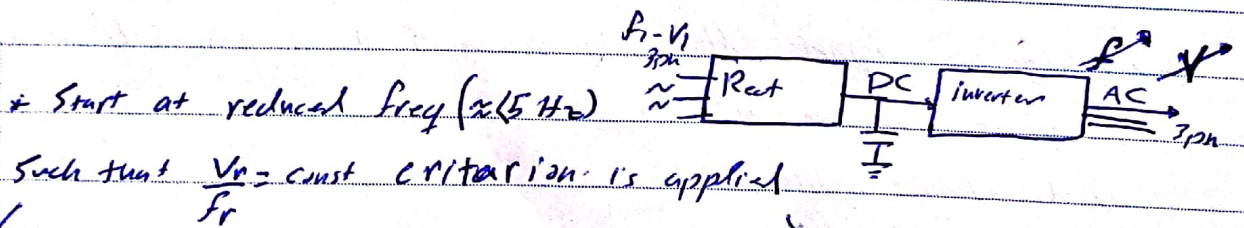 f₁-V₁
3ph
Rect DC inverter AC f V
3ph
* Start at reduced freq (≈<5 Hz)
Such that Vr/fr = const critarion is applied